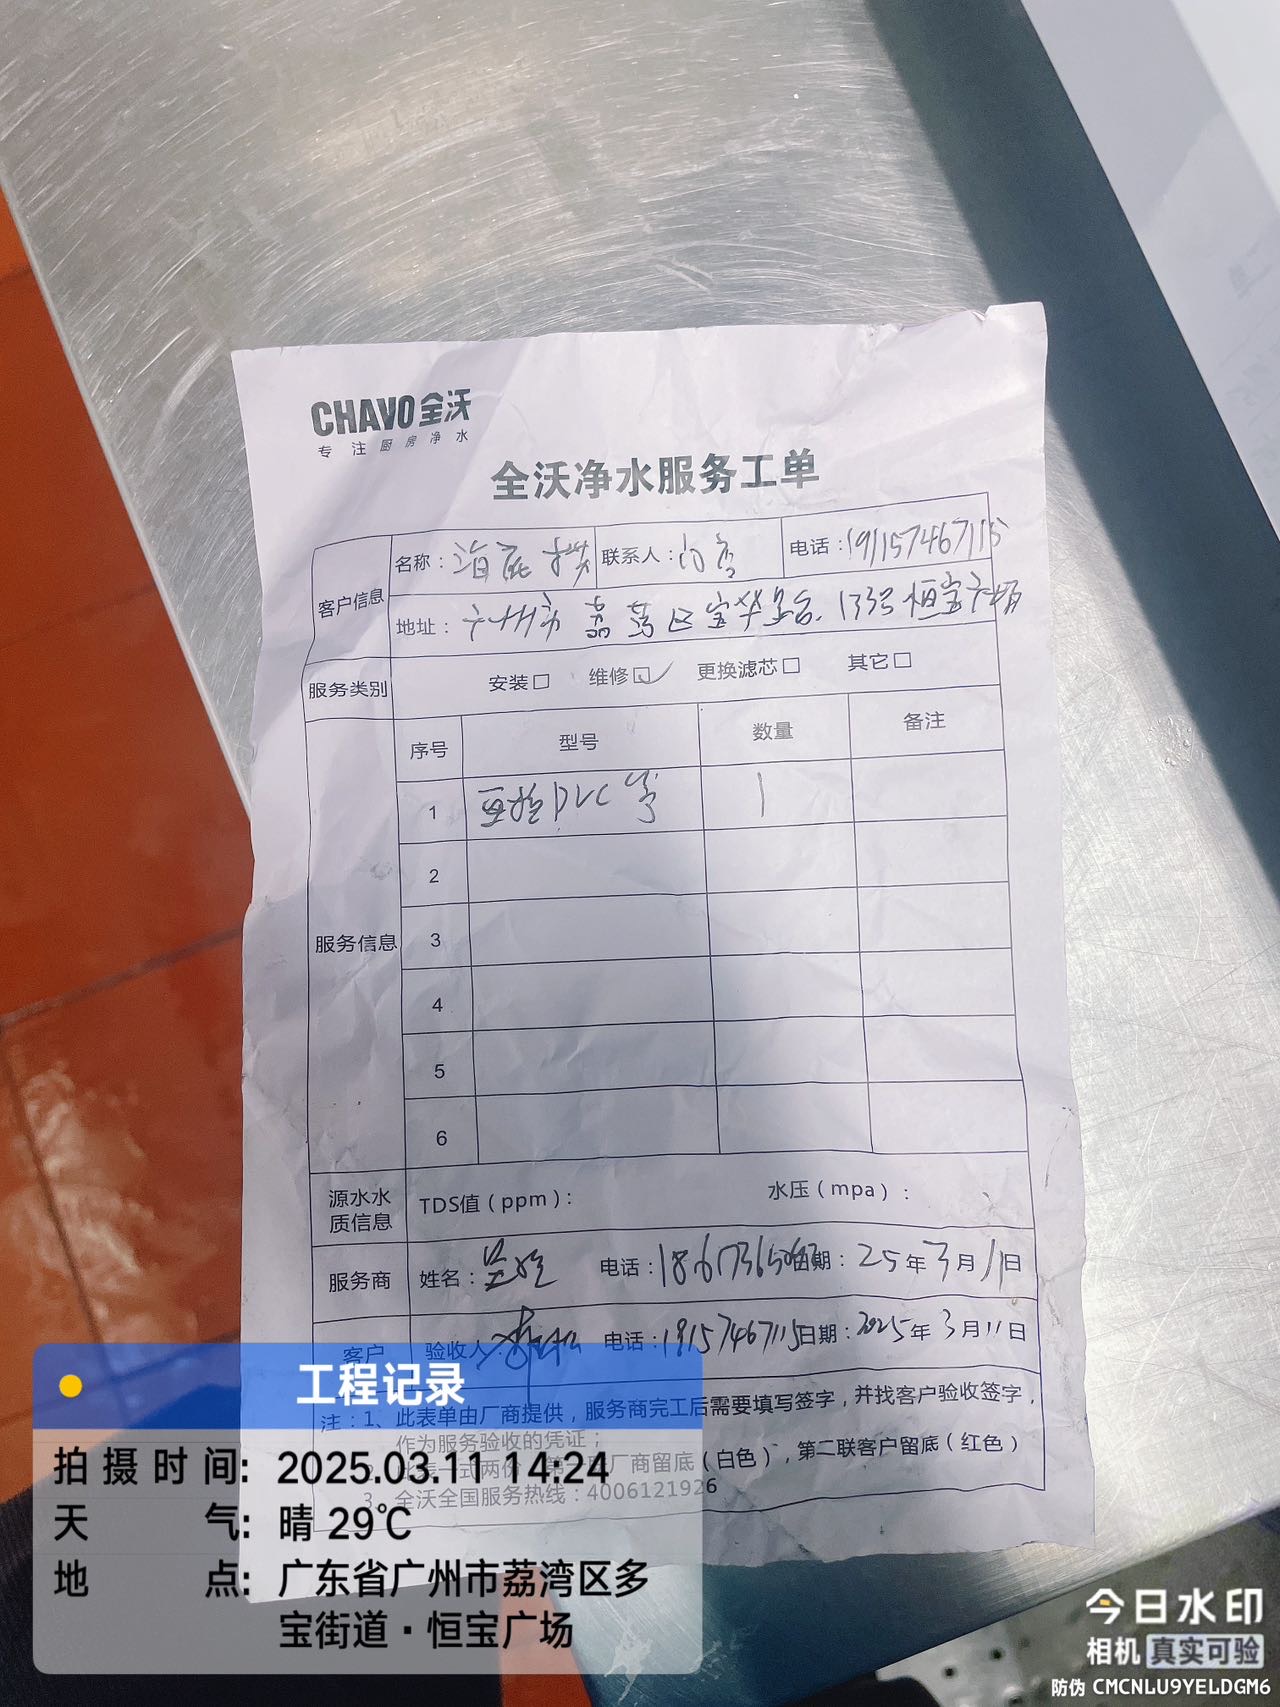 CHAVO全沃
专注厨房净水
全沃净水服务工单
客户信息
名称：海底捞 联系人： 电话：191157467115
地址：广州市荔湾区宝华路133号恒宝广场
服务类别 安装□ 维修☑ 更换滤芯□ 其它□
服务信息
序号 型号 数量 备注
1 PVC管 1
2
3
4
5
6
源水水质信息 TDS值（ppm）： 水压（mpa）：
服务商 姓名： 电话： 日期：25年3月11日
客户 验收人： 电话：19157467115 日期：2025年3月11日
注：1、此表单由厂商提供，服务商完工后需要填写签字，并找客户验收签字，
作为服务验收的凭证；
2、此表一式两份，第一联厂商留底（白色），第二联客户留底（红色）
3、全沃全国服务热线：4006121926
工程记录
拍摄时间：2025.03.11 14:24
天气：晴 29℃
地点：广东省广州市荔湾区多
宝街道·恒宝广场
今日水印
相机 真实可验
防伪 CMCNLU9YELDGM6